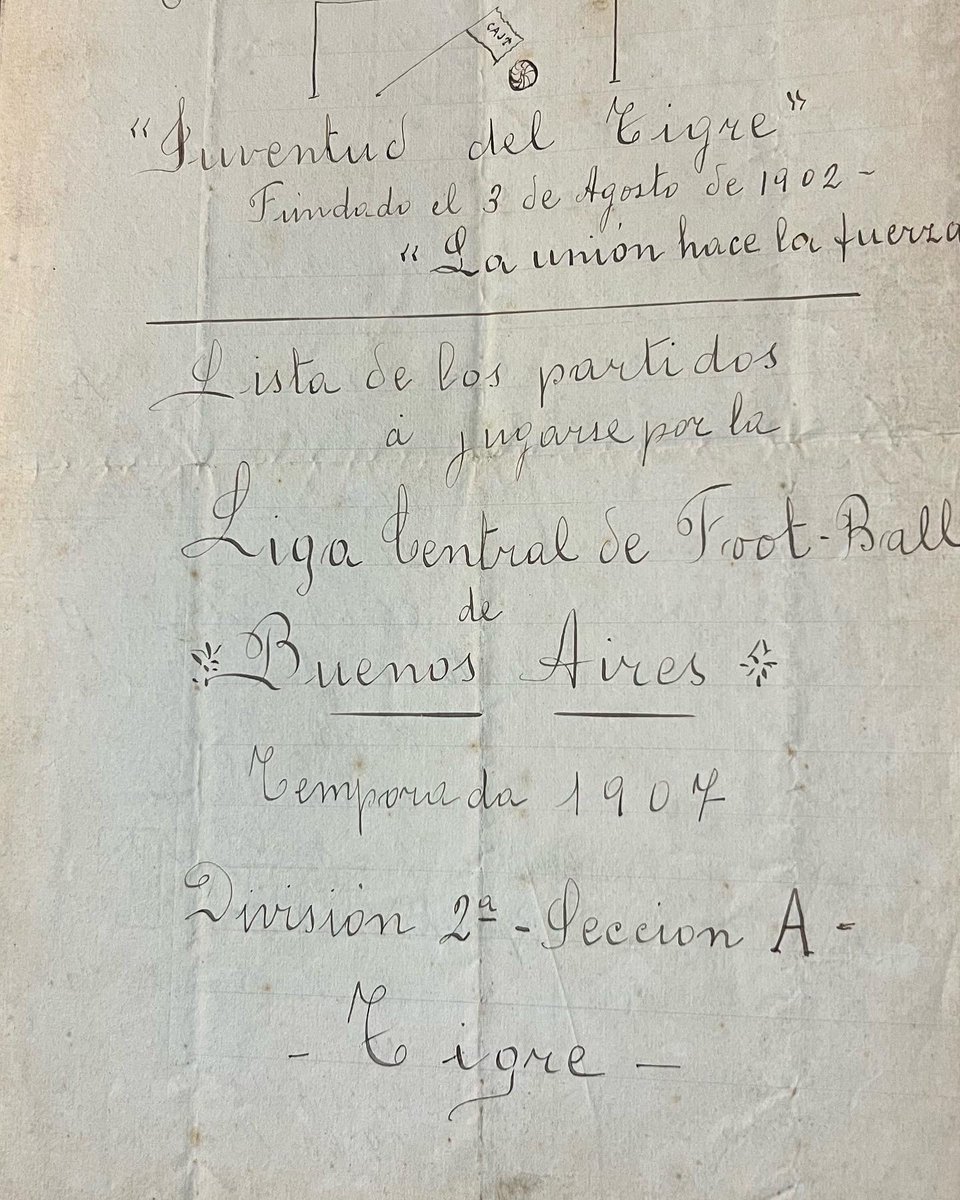 CAJT
"Juventud del Tigre"
Fundado el 3 de Agosto de 1902 -
"La unión hace la fuerza
Lista de los partidos
á jugarse por la
Liga Central de Foot-Ball
de
Buenos Aires
Temporada 1907
División 2ª - Seccion A -
- Tigre -